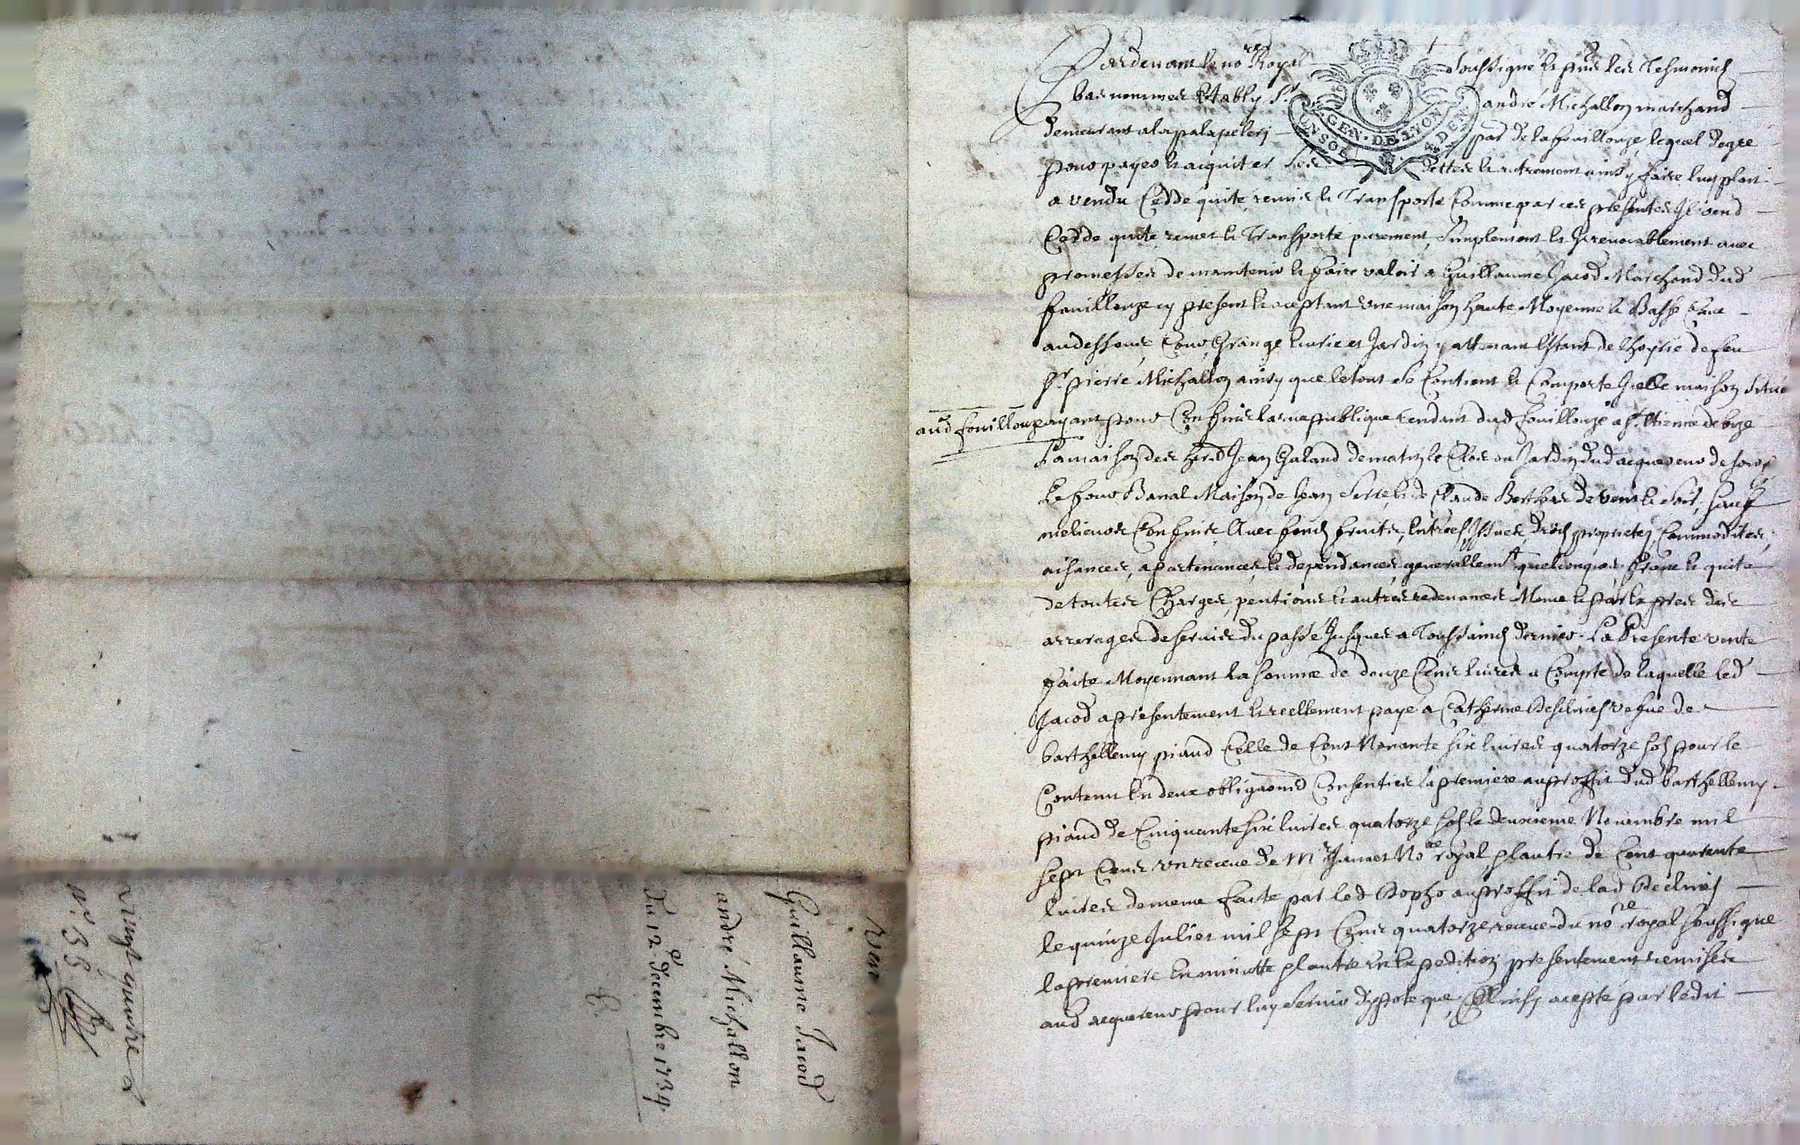 Pardevant le no.re Royal soussigné & pnts les tesmoings
bas nommes Estably Sr andré Michallon marchand
demeurant a la palapeleri par. de la fouillouze, lequel de gré
pour payer & acquiter ses dettes & autrement ainsy faire luy plait
a vendu Cedde quité remis & Transporte Comme par ces presentes Il vend
Cedde quite remet & Transporte purement, simplement & Irrevocablement avec
promesses de maintenir & faire valoir a Guillaume Jacod Marchand dud
fouillouze cy present & aceptant une maison haute Moyenne & Basse Cave
au dessous, Cour, Grange Ecurie et Jardin y attenant Estant de l'hoyrie de feu
Sr. pierre Michallon ainsy que le tout se Contient & Comporte Icelle maison scitué
aud fouillouze
ayant pour Confins la rue publique tendant dud fouillouze a St. Etienne de bize
La maison des hers Jean Galand de matin le Clos ou Jardin dud acquereur de
Le four Banal Maison de Jean & de Claude de vent & soir, sauf
meilieurs Confins, Avec fonds fruits, Entrées, Issues, droits proprietes, Commodites,
aisances, apartenances, & dependances generallemt quelconques franc & quite
de toutes Charges, pentions & autres redevances Meme & par Expres des
arrerages de servis du passé Jusques a Toussaincts dernier. La Presente vente
faite Moyennant la somme de douze Cens livres a Compte de laquelle led
Jacod a presentement & reellement payé a Catherine vefue de
barthellemy piaud Celle de Cent Nonante six livres quatorze sols pour le
Contenu En deux obligaons Consenties la premiere au proffit dud barthellemy
piaud de Cinquante six livres quatorze sols le deuxieme Novembre mil
sept Cens un receue de Mr Jamet No.re royal & l'autre de Cent quarante
livres de meme faite par led au proffit de lad
le quinze Juliet mil sept Cens quatorze receue du no.re royal soussigné
la premiere En minutte & l'autre En Expedition presentement remises
aud acquereur pour luy servir d'ypoteque, & Ainsy acepté par ledit
Ven
Guillaume Jacod
andré Michallon
du 12e. decembre 1734
vingt quatre
N°. 38